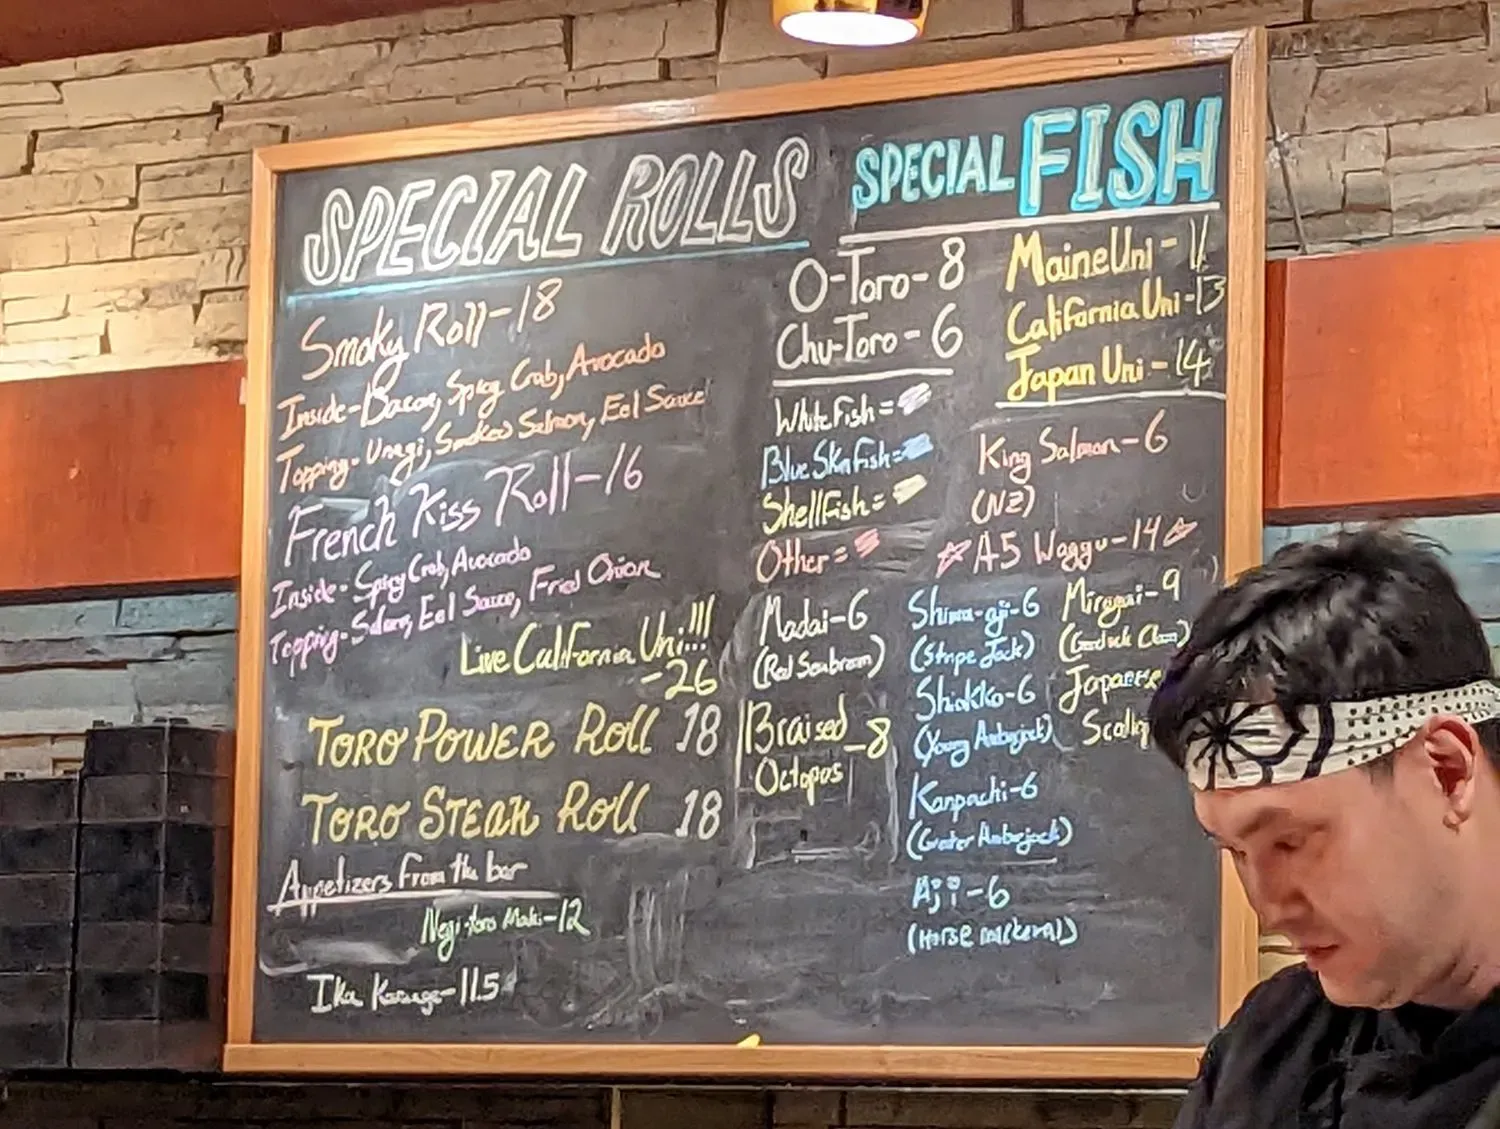 SPECIAL ROLLS
Smoky Roll-18
Inside-Bacon, Spicy Crab, Avocado
Topping-Unagi, Smoked Salmon, Eel Sauce
French Kiss Roll-16
Inside-Spicy Crab, Avocado
Topping-Salmon, Eel Sauce, Fried Onion
Live California Uni!!!
-26
TORO POWER Roll 18
TORO STEAK Roll 18
Appetizers from the bar
Negi-toro Maki-12
Ika Karaage-11.5
SPECIAL FISH
O-Toro-8
Chu-Toro-6
Maine Uni-11
California Uni-13
Japan Uni-14
White Fish=
Blue Skn Fish=
Shellfish=
Other=
King Salmon-6
(NZ)
A5 Waggu-14
Madai-6
(Red Seabream)
Braised -8
Octopus
Shima-aji-6
(Stripe Jack)
Shiokko-6
(Young Amberjack)
Kanpachi-6
(Greater Amberjack)
Aji-6
(Horse mackeral)
Mirugai-9
(Geoduck Clam)
Japanese